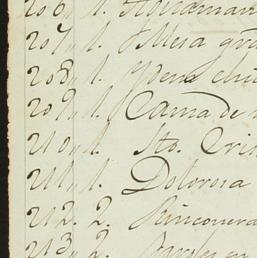 206,, 1.
207,, 1. Mesa gra
208,, 1. Ydem chi
209,, 1. Cama de
210,, 1. Sto. Cris
211,, 1. Dolorosa
212.. 2. Rinconera
213,, 2.